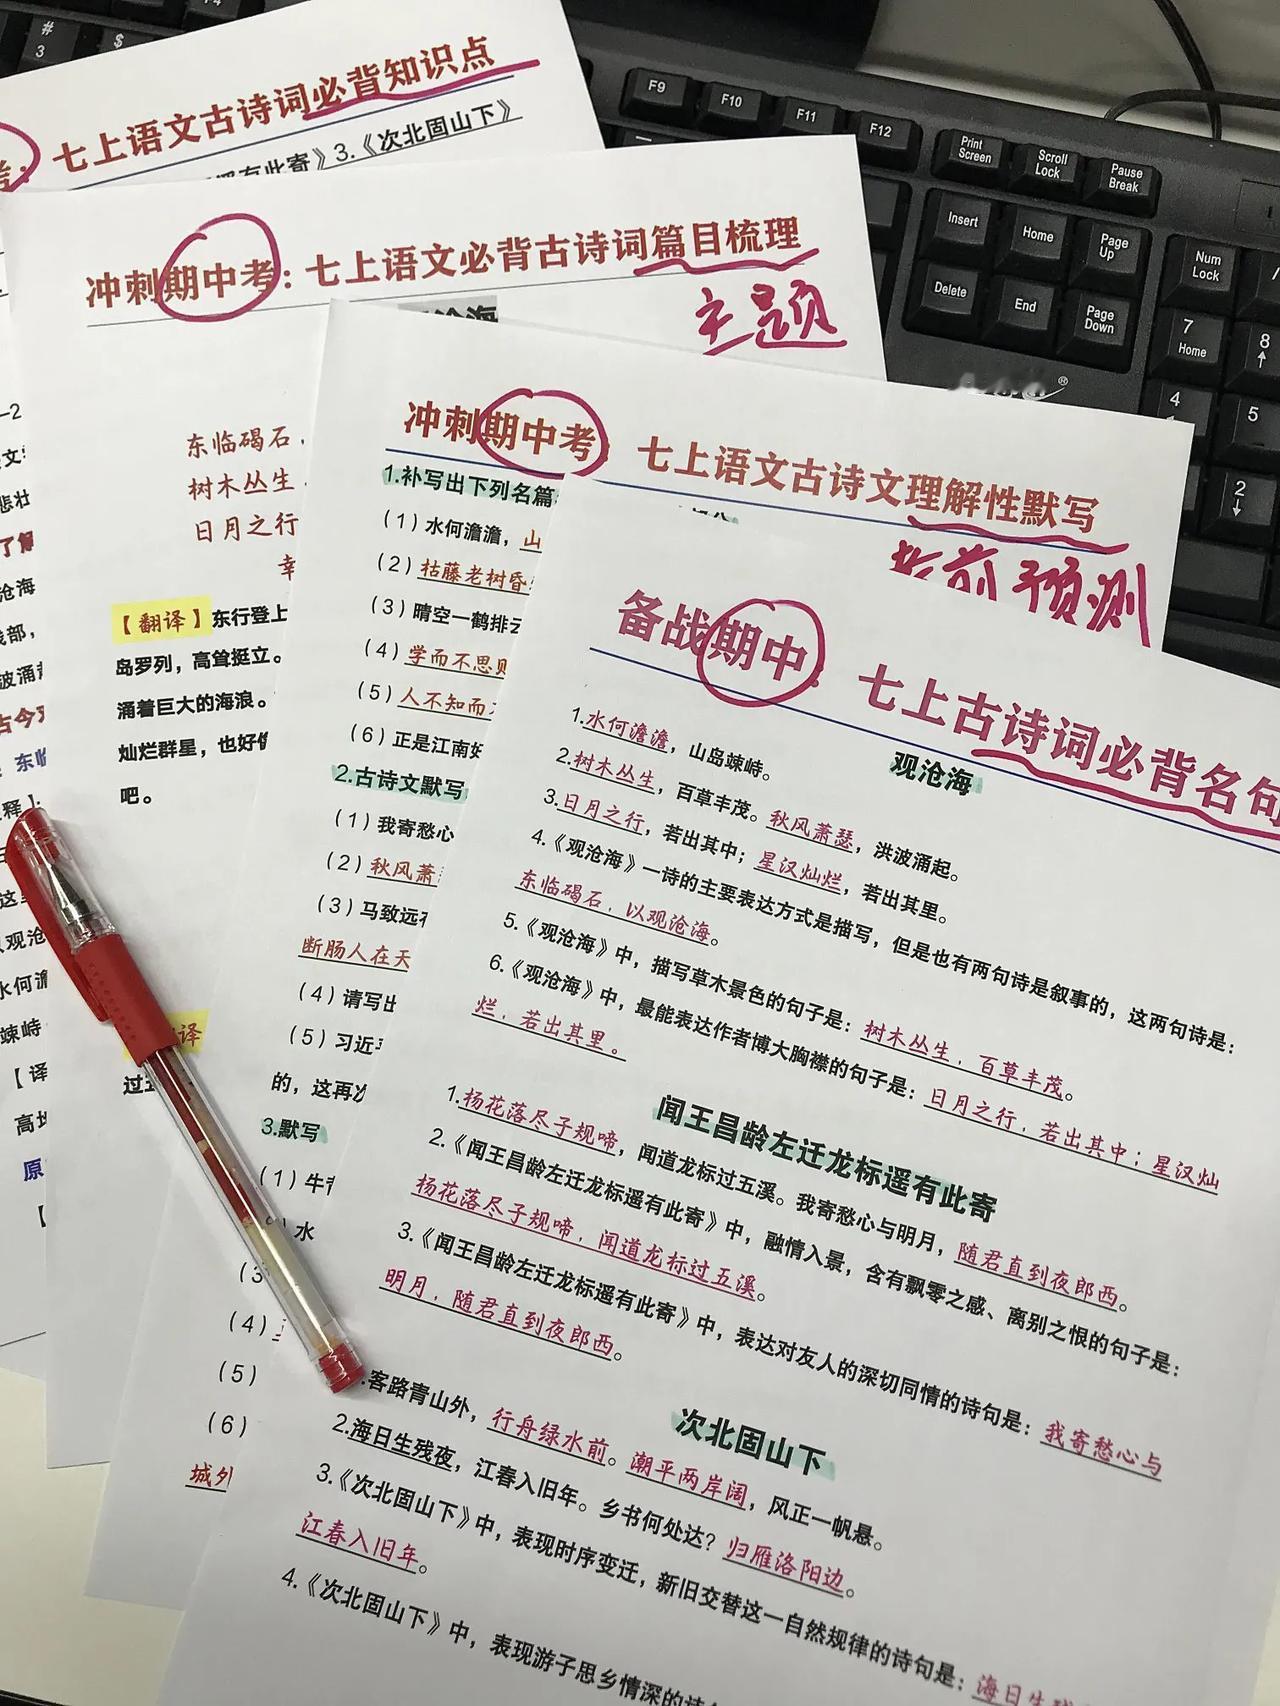 七上语文古诗词必背知识点
有此寄》3.《次北固山下》
冲刺期中考：七上语文必背古诗词篇目梳理
主题
东临碣石，
树木丛生
日月之行
幸
【翻译】东行登上
岛罗列，高耸挺立。
涌着巨大的海浪。
灿烂群星，也好像
吧。
冲刺期中考：七上语文古诗文理解性默写
考前预测
1.补写出下列名篇
(1) 水何澹澹，山
(2) 枯藤老树昏
(3) 晴空一鹤排云
(4) 学而不思则
(5) 人不知而不
(6) 正是江南好
2.古诗文默写
(1) 我寄愁心
(2) 秋风萧
(3) 马致远
断肠人在天
(4) 请写出
(5) 习近平
的，这再次
3.默写
(1) 牛
水
(4)
(5)
(6)
城外
备战期中：七上古诗词必背名句
观沧海
1.水何澹澹，山岛竦峙。
2.树木丛生，百草丰茂。秋风萧瑟，洪波涌起。
3.日月之行，若出其中；星汉灿烂，若出其里。
4.《观沧海》一诗的主要表达方式是描写，但是也有两句诗是叙事的，这两句诗是：
东临碣石，以观沧海。
5.《观沧海》中，描写草木景色的句子是：树木丛生，百草丰茂。
6.《观沧海》中，最能表达作者博大胸襟的句子是：日月之行，若出其中；星汉灿
烂，若出其里。
闻王昌龄左迁龙标遥有此寄
1.杨花落尽子规啼，闻道龙标过五溪。我寄愁心与明月，随君直到夜郎西。
2.《闻王昌龄左迁龙标遥有此寄》中，融情入景，含有飘零之感、离别之恨的句子是：
杨花落尽子规啼，闻道龙标过五溪。
3.《闻王昌龄左迁龙标遥有此寄》中，表达对友人的深切同情的诗句是：我寄愁心与
明月，随君直到夜郎西。
次北固山下
1.客路青山外，行舟绿水前。潮平两岸阔，风正一帆悬。
2.海日生残夜，江春入旧年。乡书何处达？归雁洛阳边。
3.《次北固山下》中，表现时序变迁，新旧交替这一自然规律的诗句是：海日生残
江春入旧年。
4.《次北固山下》中，表现游子思乡情深的诗
F9
F10
F11
F12
Print Screen
Scroll Lock
Pause Break
Insert
Home
Page Up
Num Lock
Delete
End
Page Down
7 Home
8
4
5
2
#
3
$